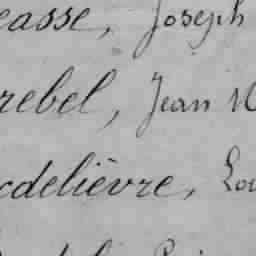 easse, Joseph
rebel, Jean
cdelièvre, Lou